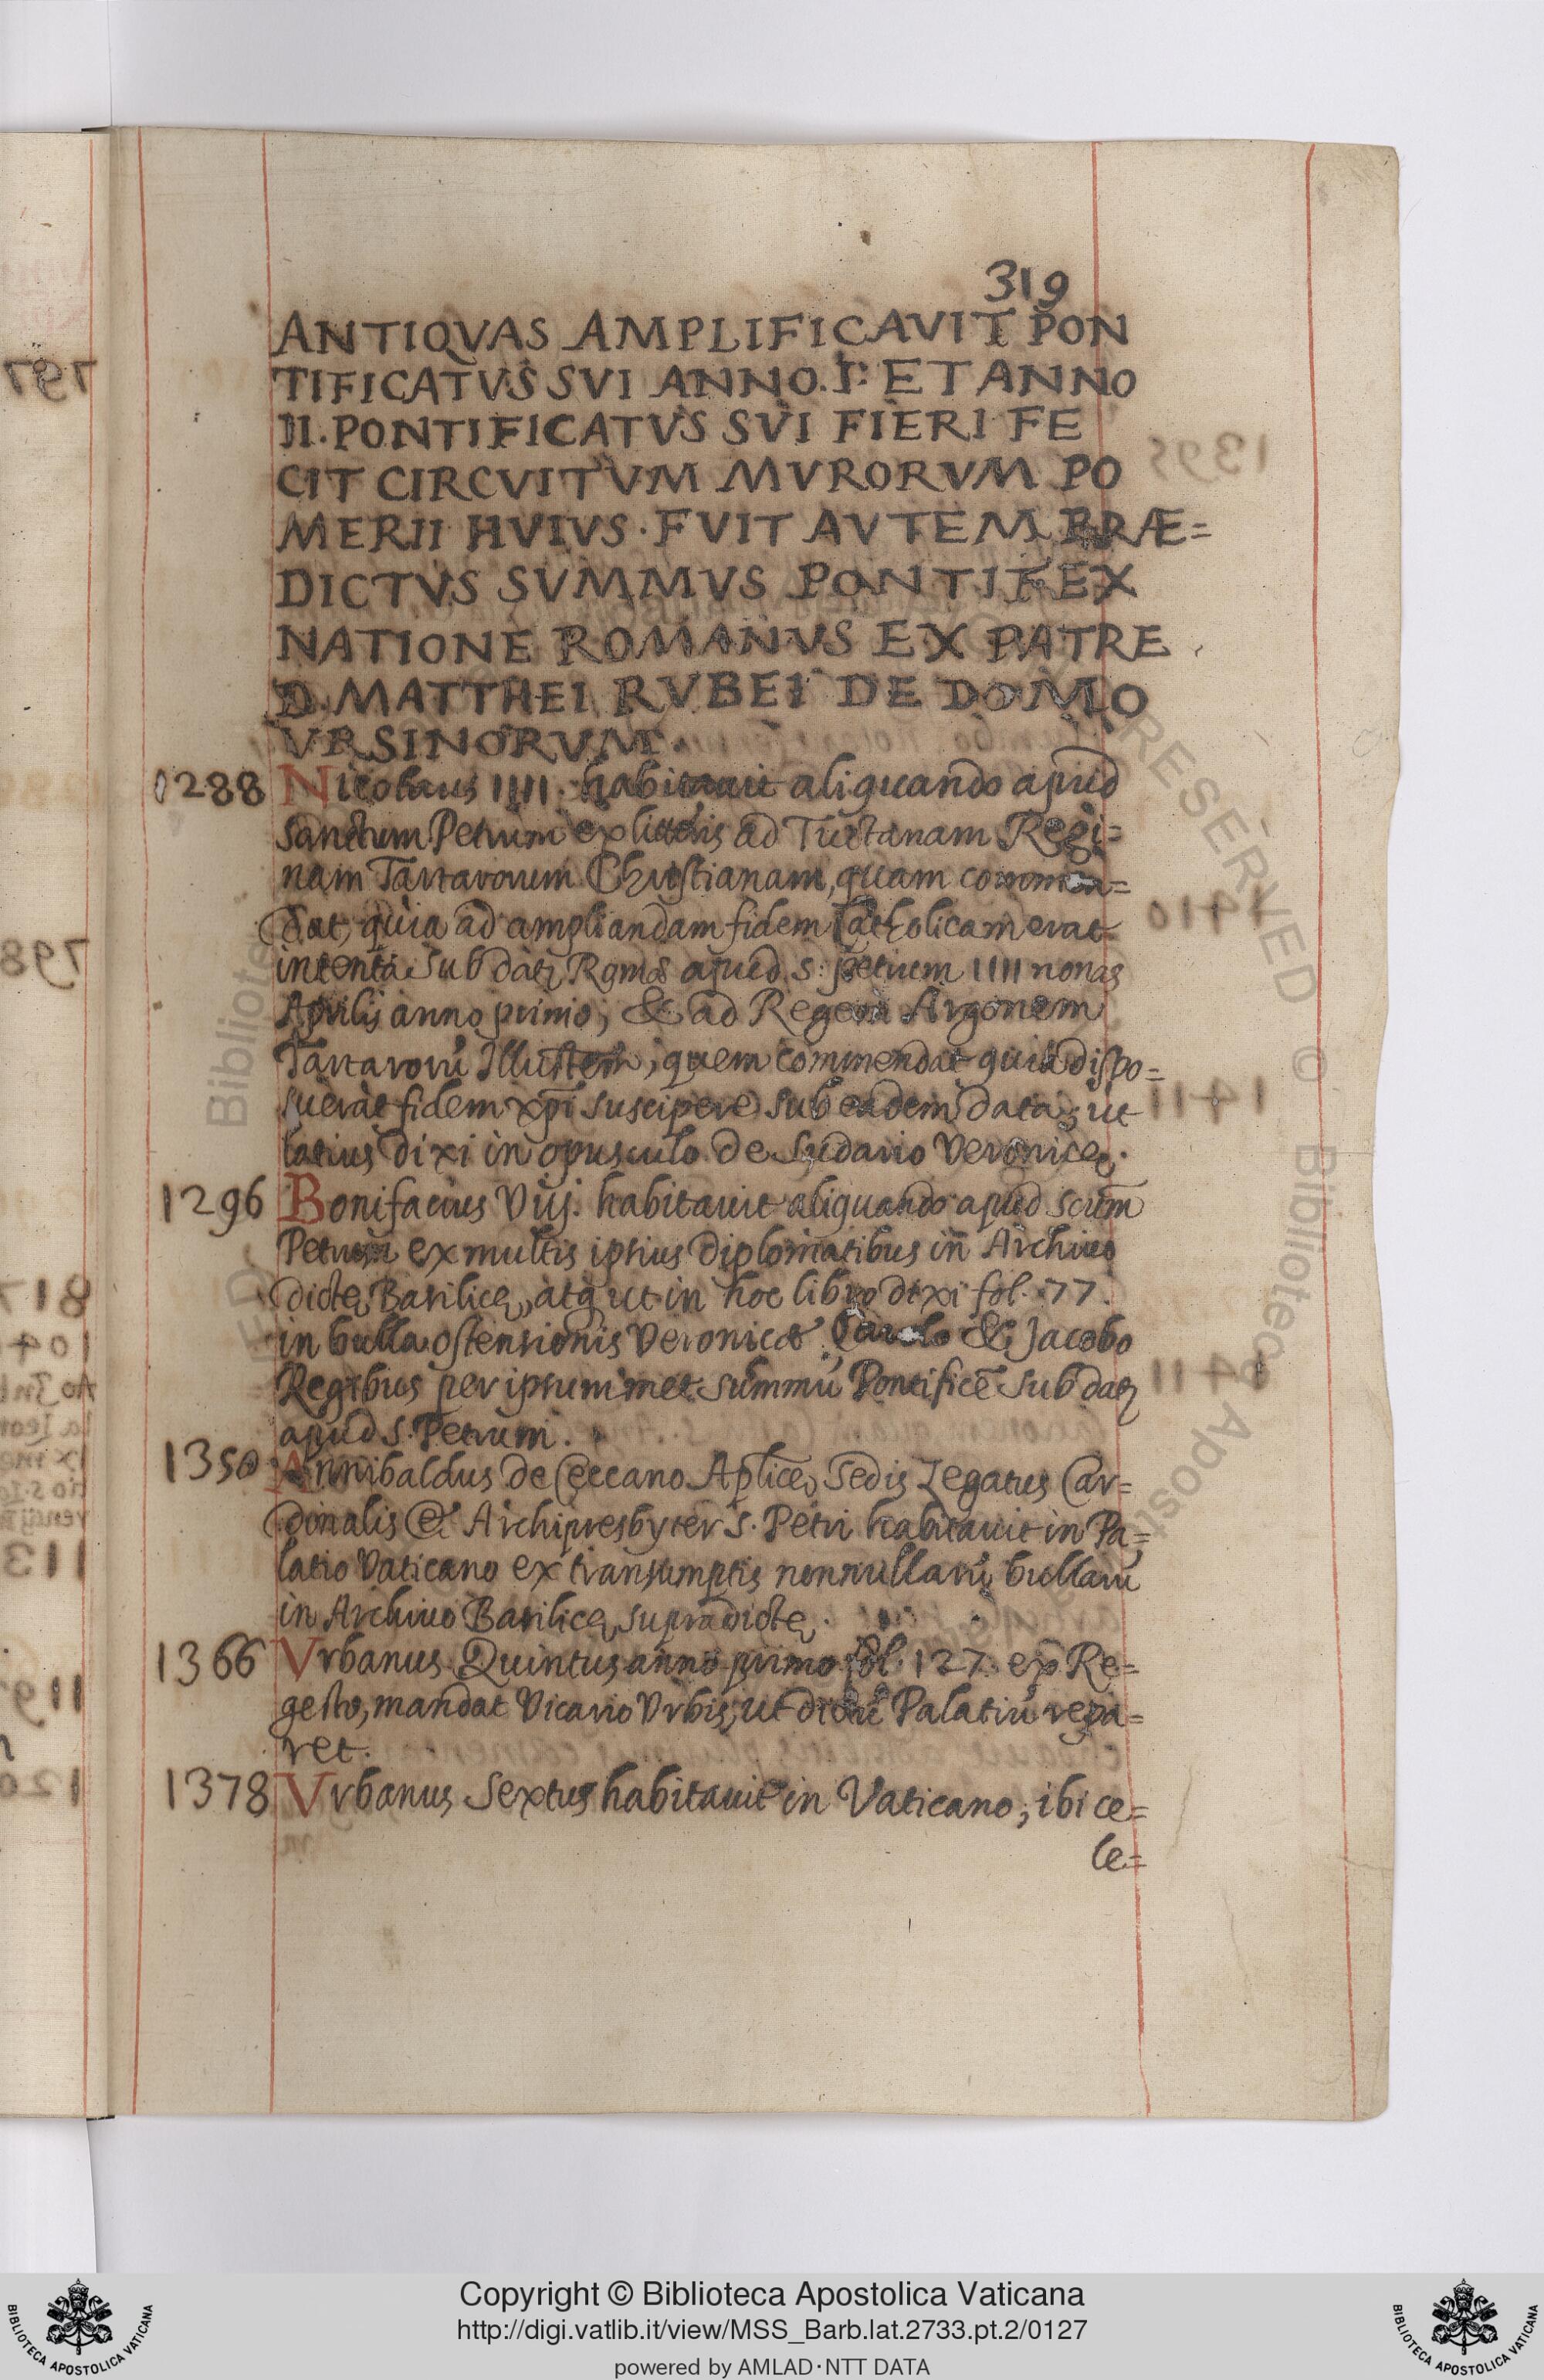 319
ANTIQVAS AMPLIFICAVIT PON
TIFICATVS SVI ANNO. I: ET ANNO
II. PONTIFICATVS SVI FIERI FE
CIT CIRCVITVM MVRORVM PO
MERII HVIVS. FVIT AVTEM PRÆ=
DICTVS SVMMVS PONTIFEX
NATIONE ROMANVS EX PATRE
D. MATTHEI RVBEI DE DOMO
VRSINORVM.
1288 Nicolaus IIII. habitauit aliquando apud
sanctum Petrum ex litteris ad Tuctanam Regi=
nam Tartarorum Christianam, quam commen=
dat, quia ad ampliandam fidem Catholicam erat
intenta sub datȝ Romæ apud s: petrum IIII nonas
Aprilis anno primo; & ad Regem Argonem
Tartarorũ Illustrem, quem commendat quia dispo=
suerat fidem xp̃i suscipere sub eadem data; ut
latius dixi in opusculo de Sudario Veronicę.
1296 Bonifacius Viij. habitauit aliquando apud scũm
Petrum ex multis ipsius diplomatibus in Archiuo
dictę Basilicę, atq ut in hoc libro dixi fol. 77.
in bulla ostensionis Veronicæ Carolo & Jacobo
Regibus per ipsummet summũ Pontificẽ sub datȝ
apud s. Petrum.
1350 Annibaldus de Ceccano Aplicę Sedis Legatus Car=
dinalis & Archipresbyter s. Petri habitauit in Pa=
latio Vaticano ex transumptis nonnullarũ bullarũ
in Archiuo Basilicę supradictę.
1366 Vrbanus Quintus anno primo fol. 127. ex Re=
gesto, mandat Vicario Vrbis, ut dictũ Palatiũ repa=
ret.
1378 Vrbanus Sextus habitauit in Vaticano; ibi ce=
le=
Copyright © Biblioteca Apostolica Vaticana
http://digi.vatlib.it/view/MSS_Barb.lat.2733.pt.2/0127
powered by AMLAD·NTT DATA
BIBLIOTECA APOSTOLICA VATICANA
BIBLIOTECA APOSTOLICA VATICANA